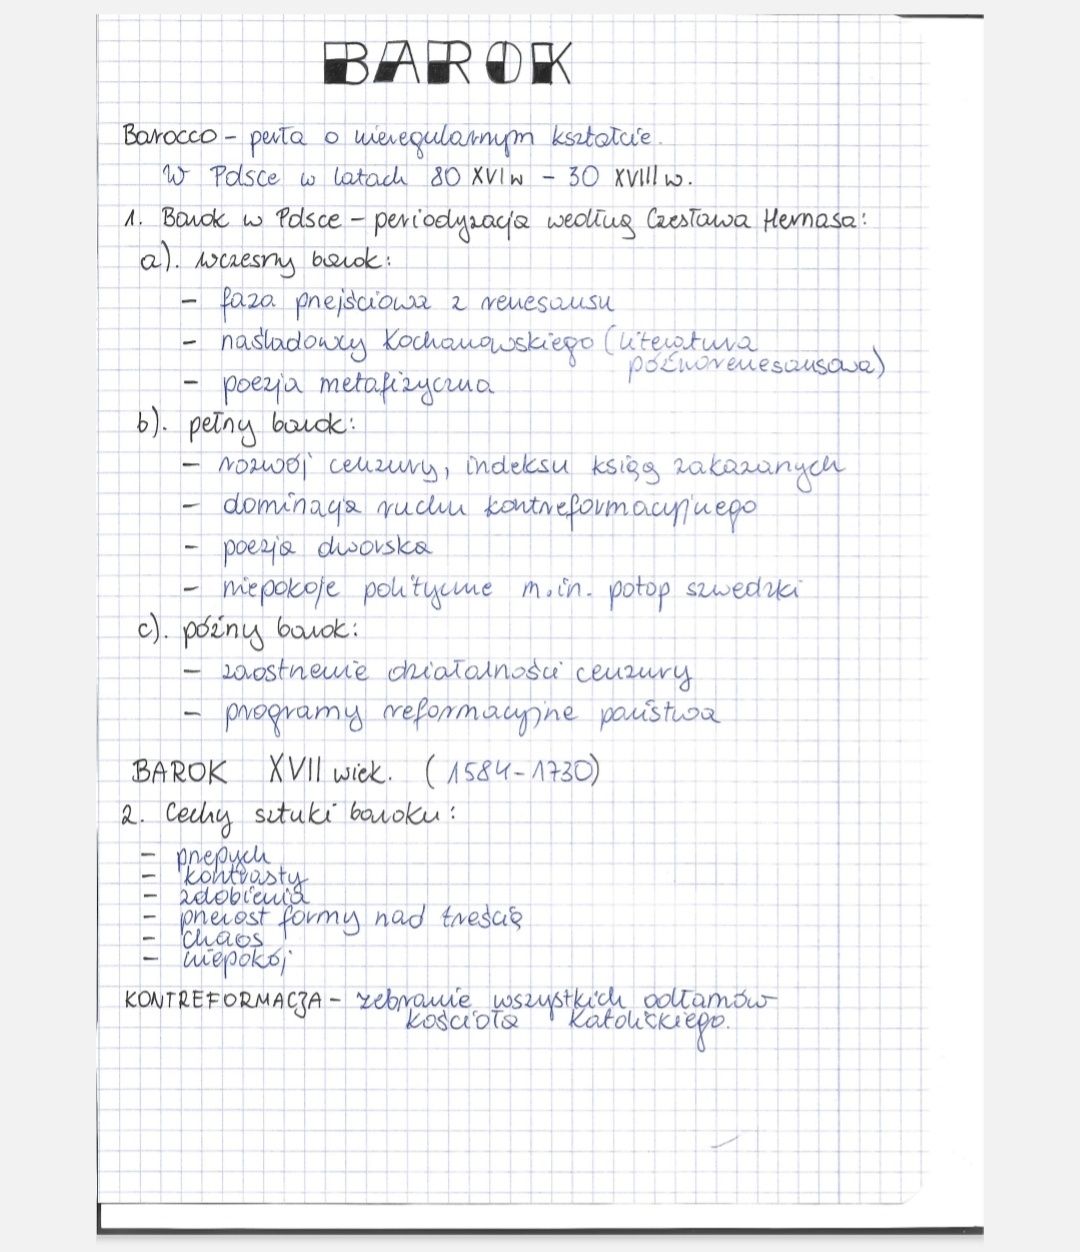 BAROK
Barocco - perła o nieregularnym kształcie.
W Polsce w latach 80 XVI w - 30 XVIII w.
1. Barok w Polsce - periodyzacja według Czesława Hernasa:
a). wczesny barok:
- faza przejściowa z renesansu
- naśladowcy Kochanowskiego (literatura
późnorenesansowa)
- poezja metafizyczna
b). pełny barok:
- rozwój cenzury, indeksu ksiąg zakazanych
- dominacja ruchu kontrreformacyjnego
- poezja dworska
- niepokoje polityczne m.in. potop szwedzki
c). późny barok:
- zaostrzenie działalności cenzury
- programy reformacyjne państwa
BAROK XVII wiek. (1584-1730)
2. Cechy sztuki baroku:
- przepych
- kontrasty
- zdobienia
- przerost formy nad treścią
- chaos
- niepokój
KONTREFORMACJA - zebranie wszystkich odłamów
kościoła katolickiego.